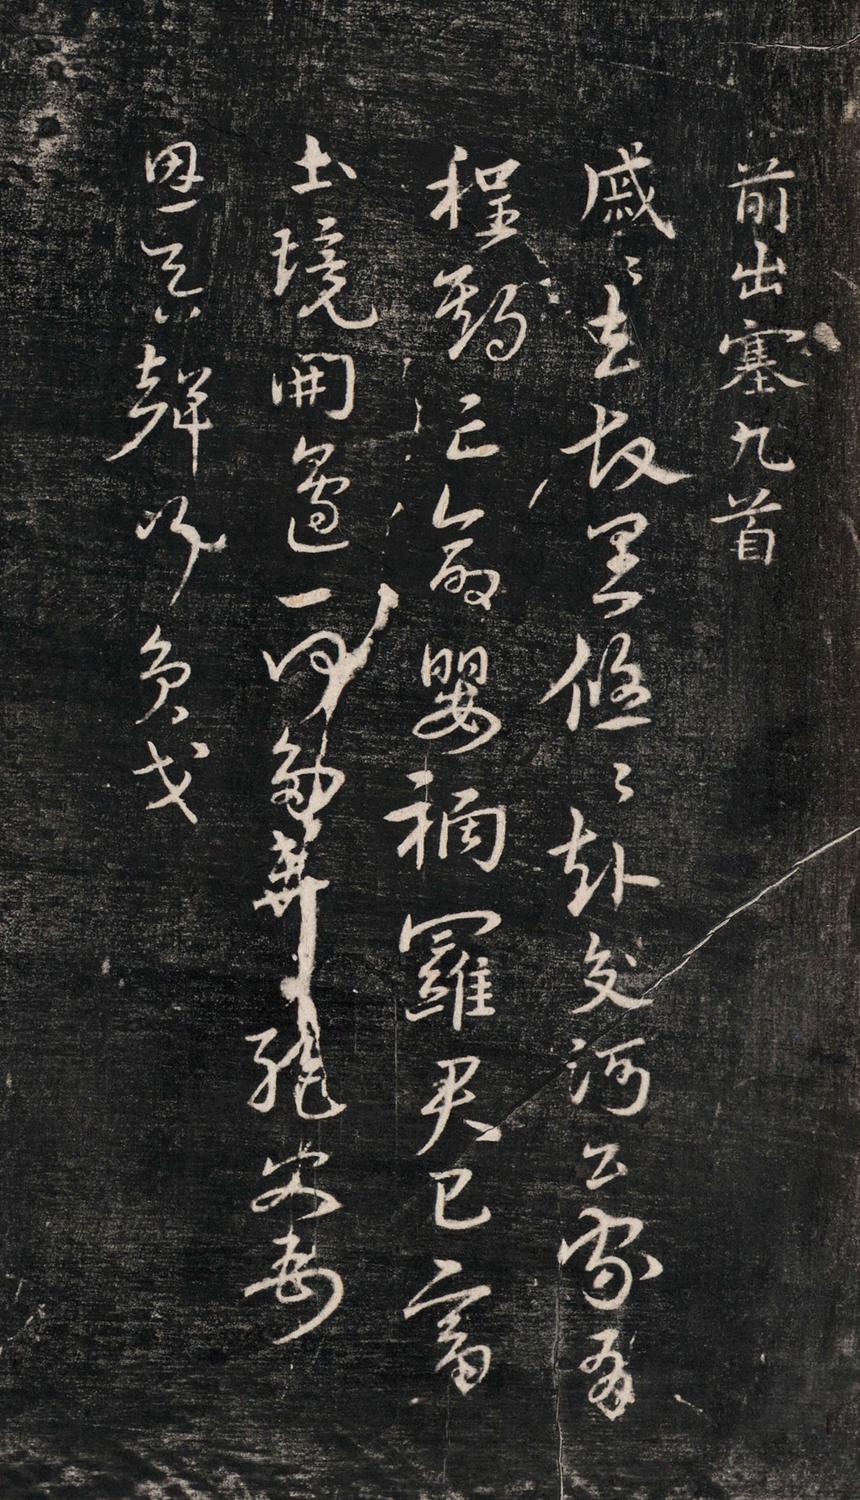 前出塞九首
戚〻去故里悠〻赴交河公家有
程期亡命嬰禍羅君已富
土境開邊一何多棄絕父母
恩吞聲行負戈